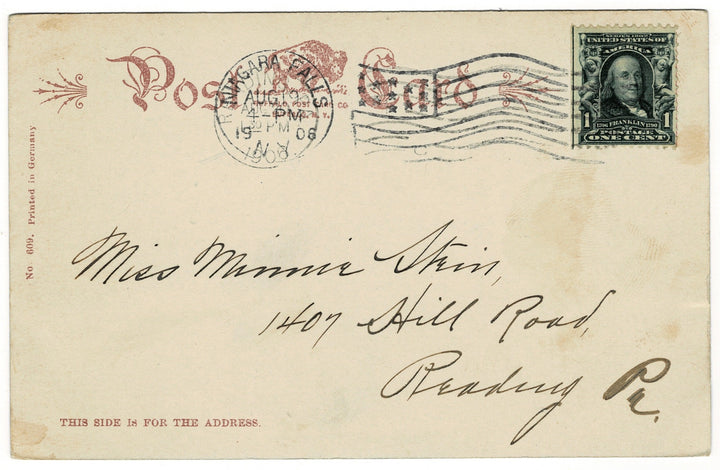 Post Card
NIAGARA FALLS
AUG 13
4-PM
19 06
N.Y.
1906
SERIES 1902
UNITED STATES OF
AMERICA
1706 FRANKLIN 1790
1 POSTAGE 1
ONE CENT
No 609. Printed in Germany
Miss Minnie Stein,
1407 Hill Road,
Reading Pa.
THIS SIDE IS FOR THE ADDRESS.